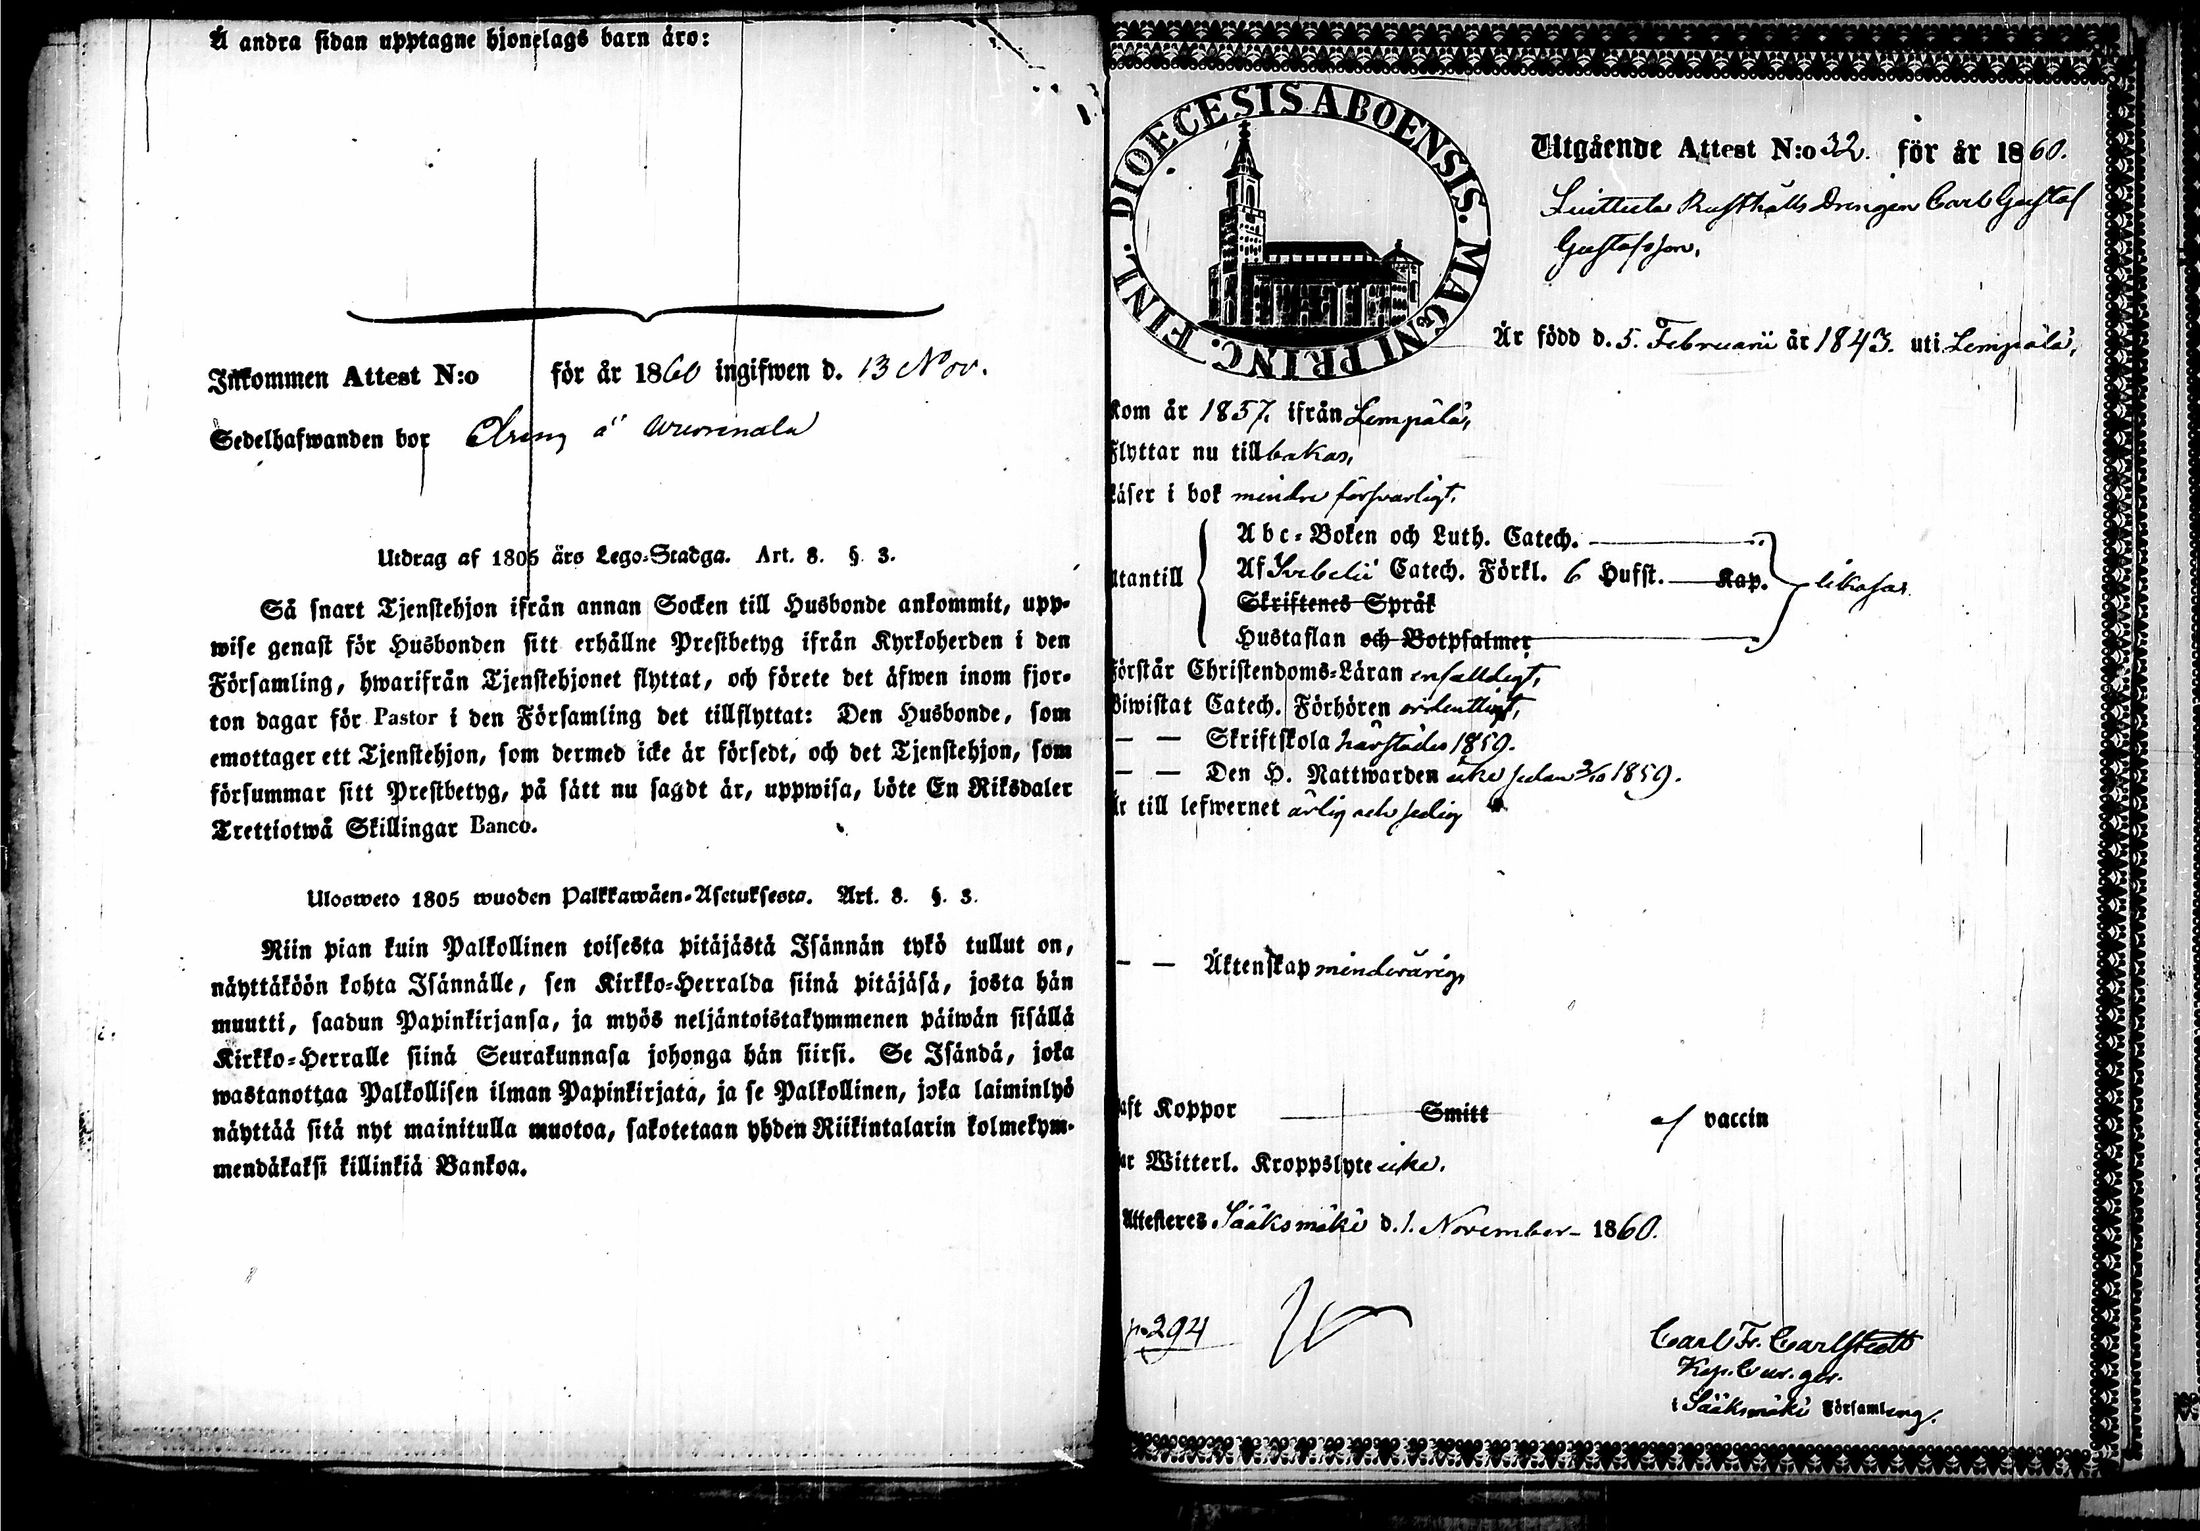 Å andra sidan upptagne hjonelags barn äro:
Inkommen Attest N:o för år 1860 ingifwen d. 13 Nov.
Sedelhafwanden bor Dreng å
Utdrag af 1805 års Lego-Stadga. Art. 8. §. 3.
Så snart Tjenstehjon ifrån annan Socken till Husbonde ankommit, upp-
wise genast för Husbonden sitt erhållne Prestbetyg ifrån Kyrkoherden i den
Församling, hwarifrån Tjenstehjonet flyttat, och förete det äfwen inom fjor-
ton dagar för Pastor i den Församling det tillflyttat: Den Husbonde, som
emottager ett Tjenstehjon, som dermed icke är försedt, och det Tjenstehjon, som
försummar sitt Prestbetyg, på sätt nu sagdt är, uppwisa, böte En Riksdaler
Trettiotwå Skillingar Banco.
Ulosweto 1805 wuoden Palkkawäen-Asetuksesta. Art. 8. §. 3.
Niin pian kuin Palkollinen toisesta pitäjästä Isännän tykö tullut on,
näyttäköön kohta Isännälle, sen Kirkko-Herralda siinä pitäjäsä, josta hän
muutti, saadun Papinkirjansa, ja myös neljäntoistakymmenen päiwän sisällä
Kirkko-Herralle siinä Seurakunnasa johonga hän siirsi. Se Isändä, joka
wastanottaa Palkollisen ilman Papinkirjata, ja se Palkollinen, joka laiminlyö
näyttää sitä nyt mainitulla muotoa, sakotetaan yhden Riikintalarin kolmekym-
mendäkaksi killinkiä Bankoa.
DIOECESIS ABOENSIS. MAGNI PRINC. FINL.
Utgående Attest N:o 32. för år 1860.
Rusthålls Drengen Carl Gustaf
Gustafsson,
Är född d. 5. Februarii år 1843. uti Lempälä,
Kom år 1857. ifrån Lempälä,
Flyttar nu tillbakas,
Läser i bok mindre försvarligt,
Abc-Boken och Luth. Catech.
utantill Af Svebelii Catech. Förkl. 6 Hufst. Kap. likaså
Skriftenes Språk
Hustaflan och Botpsalmer
Förstår Christendoms-Läran enfalldigt,
Biwistat Catech. Förhören ordentligt,
— — Skriftskola härstädes 1859.
— — Den H. Nattwarden icke sedan 2/10 1859.
Är till lefwernet ärlig och sedig
— — Äktenskap minderårig,
Haft Koppor Smitt af vaccin
Har Witterl. Kroppslyte icke.
Attesteres Sääksmäki d. 1. November 1860.
p. 294
Carl Fr. Carlstedt
Kap. Cur. ger.
i Sääksmäki Församling.